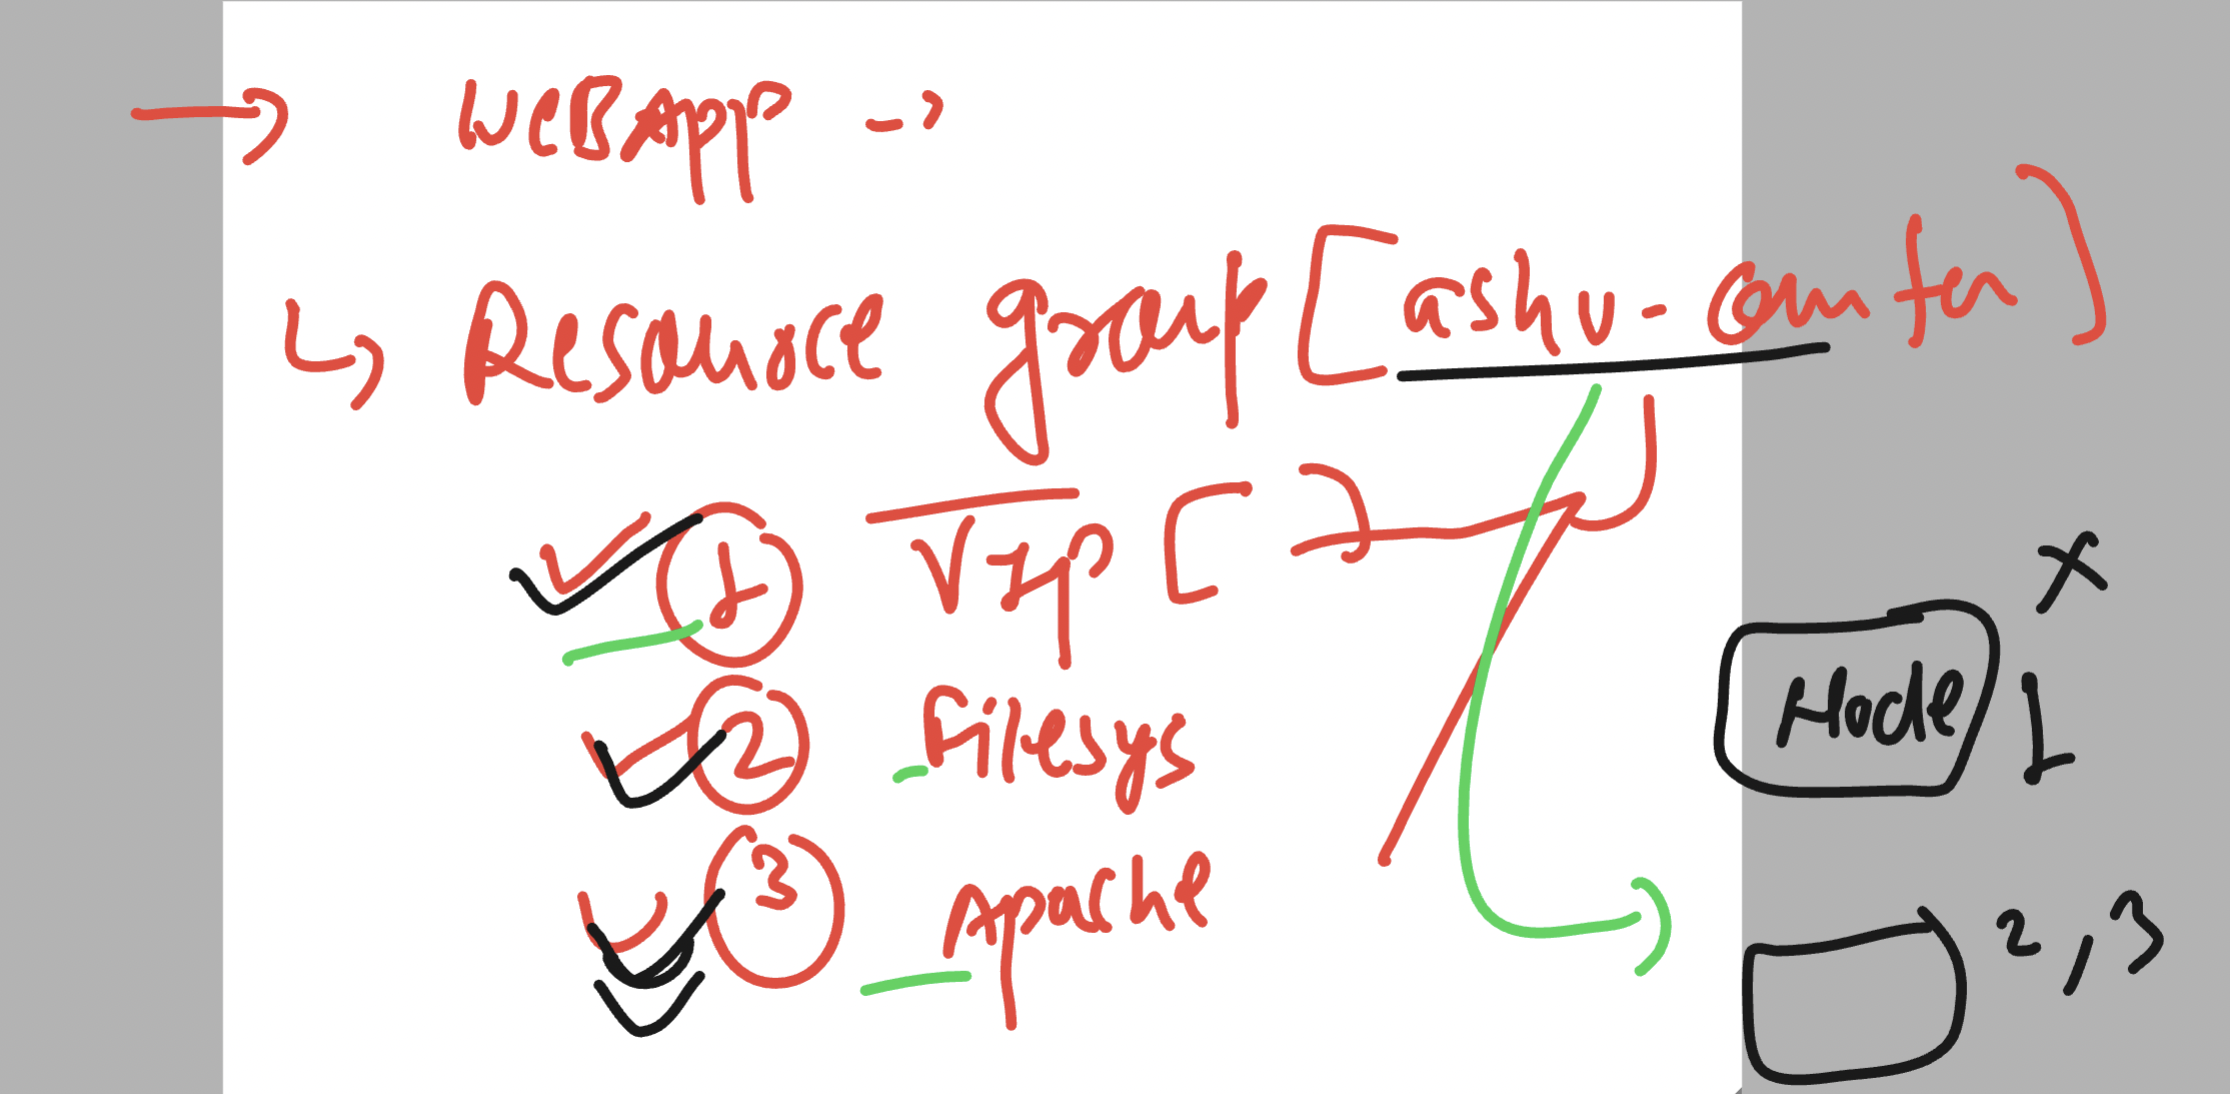 → WeBApp ->
↳ Resource group [ashu-
① VIP [ ]
② Filesys
③ Apache
x
Node 1
2,3